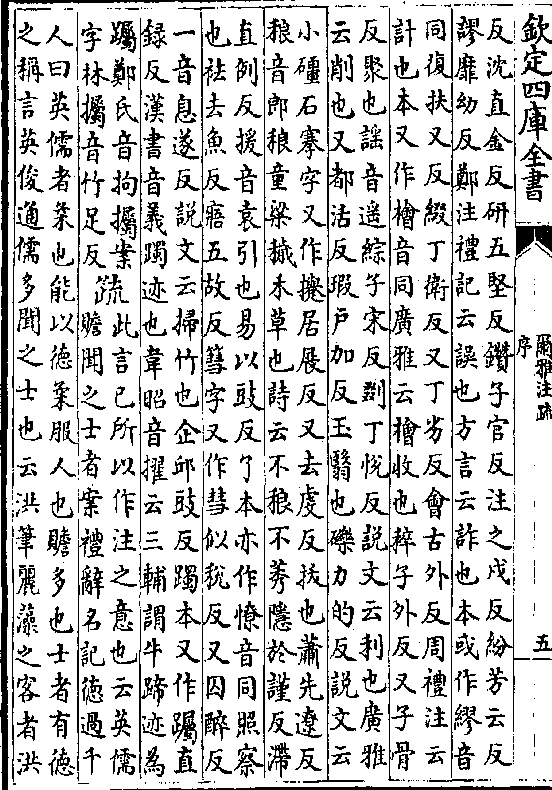 欽定四庫全書
爾雅注疏
序
五
反沈直金反研五堅反鑽子官反注之戍反紛芳云反
謬靡幼反鄭注禮記云誤也方言云詐也本或作繆音
同復扶又反綴丁衛反又丁劣反會古外反周禮注云
計也本又作檜音同廣雅云檜收也稡子外反又子骨
反聚也謡音遥綜子宋反剟丁悅反説文云刋也廣雅
云削也又都活反瑕戸加反玉翳也礫力的反説文云
小礓石搴字又作攓居展反又去虔反拔也蕭先遼反
稂音郎稂童粱韯禾草也詩云不稂不莠隱於謹反滯
直例反援音袁引也易以豉反了本亦作憭音同照察
也祛去魚反寤五故反篲字又作彗似税反又囚醉反
一音息遂反説文云掃竹也企邱豉反躅本又作躅直
録反漢書音義躅迹也韋昭音擢云三輔謂牛蹄迹為
躅鄭氏音拘攔業
字林攔音竹足反 疏此言已所以作注之意也云英儒
贍聞之士者案禮辭名記徳過千
人曰英儒者柔也能以徳柔服人也贍多也士者有徳
之稱言英俊通儒多聞之士也云洪筆麗藻之客者洪